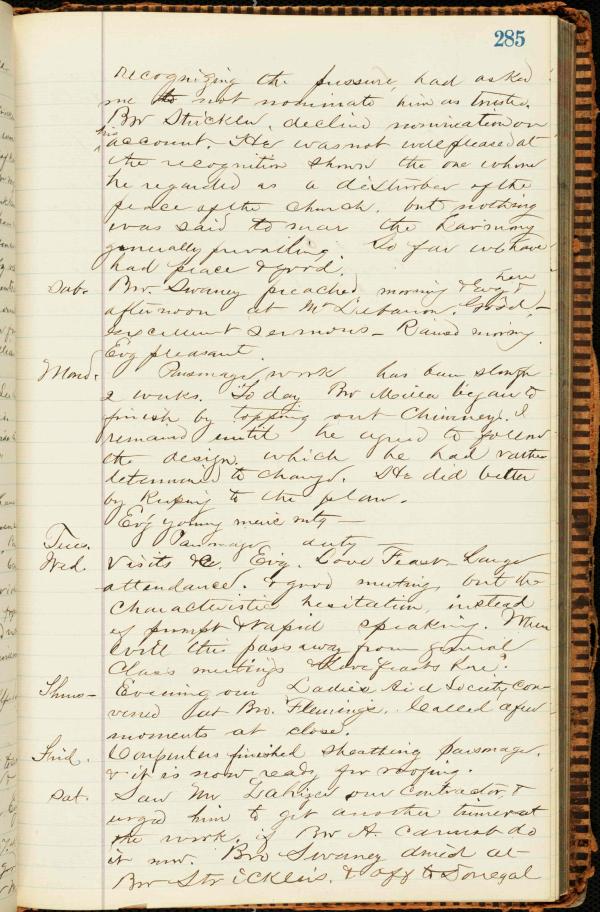 285
recognizing the pressure, had asked
me to not nominate him as trustee.
Bro Strickler, declined nomination on
his account. He was not well pleased at
the recognition shown the one whom
he regarded as a disturber of the
peace of the church. but nothing
was said to mar the harmony
generally prevailing. So far we have
had peace & good.
Sab. Bro. Swaney preached morning & Evg here &
afternoon at Mt Lebanon. Good, -
excellent sermons - Rained morning.
Evg pleasant.
Mond. Parsonage work has been stopped
2 weeks. To day Bro Miller began to
finish by topping out Chimneys. I
remained until he agreed to follow
the design. which he had rather
determined to change. He did better
by keeping to the plan.
Ev'g young mens mtg -
Tues. Parsonage duty -
Wed. Visits &c. Evg. Love Feast - Large
attendance. & good meeting, but the
characteristic hesitation, instead
of prompt & rapid speaking. When
will this pass away from general
Class meetings & Love feasts here?
Thurs - Evening our Ladies Aid Society con-
vened at Bro. Flemings. Called a few
moments at close.
Frid. Carpenters finished sheathing parsonage.
& it is now ready for roofing.
Sat. Saw Mr our Contractor &
urged him to get another tinner at
the work, if Bro A. cannot do
it now. Bro Swaney dined at
Bro Strickler's. & off to Donegal